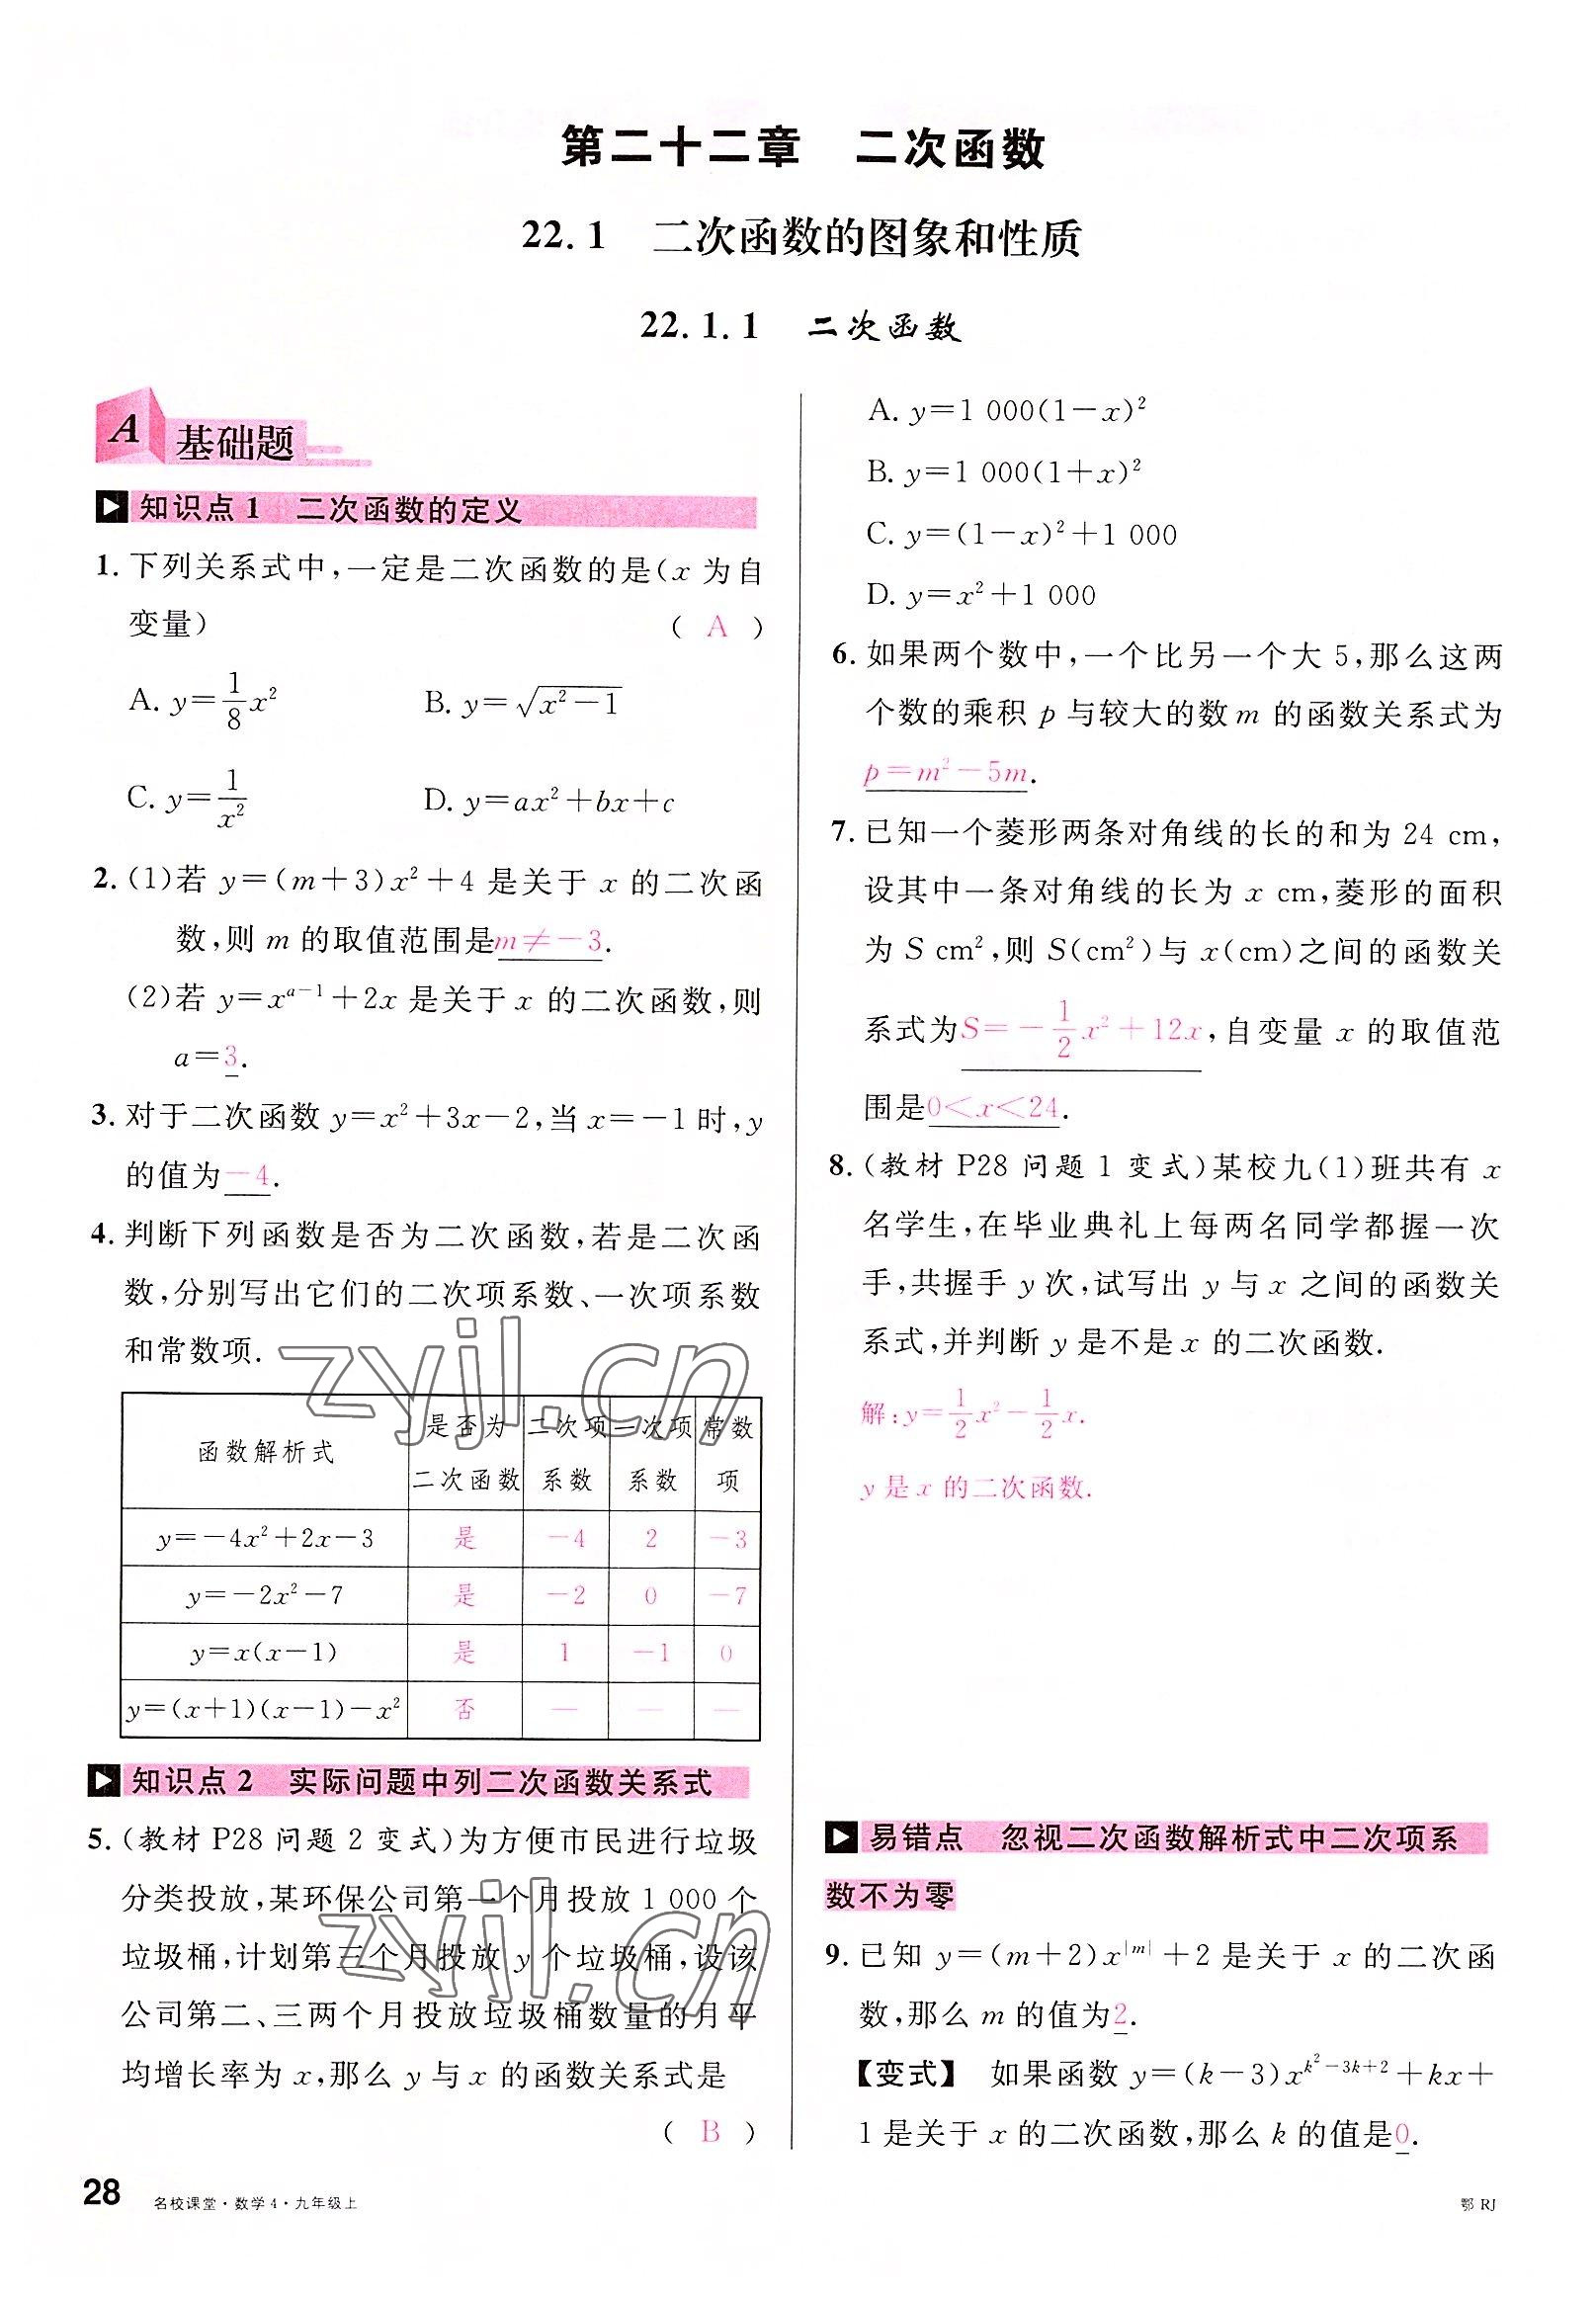 第二十二章 二次函数
22.1 二次函数的图象和性质
22.1.1 二次函数
A 基础题
知识点1 二次函数的定义
1. 下列关系式中，一定是二次函数的是(x 为自
变量) ( A )
A. y=\frac{1}{8}x² B. y=√(x²-1)
C. y=\frac{1}{x²} D. y=ax²+bx+c
2. (1)若 y=(m+3)x²+4 是关于 x 的二次函
数，则 m 的取值范围是m≠-3.
(2)若 y=x^{a-1}+2x 是关于 x 的二次函数，则
a=3.
3. 对于二次函数 y=x²+3x-2，当 x=-1 时，y
的值为-4.
4. 判断下列函数是否为二次函数，若是二次函
数，分别写出它们的二次项系数、一次项系数
和常数项.
函数解析式 是否为二次函数 二次项系数 一次项系数 常数项
y=-4x²+2x-3 是 -4 2 -3
y=-2x²-7 是 -2 0 -7
y=x(x-1) 是 1 -1 0
y=(x+1)(x-1)-x² 否 — — —
知识点2 实际问题中列二次函数关系式
5. (教材 P28 问题 2 变式)为方便市民进行垃圾
分类投放，某环保公司第一个月投放 1 000 个
垃圾桶，计划第三个月投放 y 个垃圾桶，设该
公司第二、三两个月投放垃圾桶数量的月平
均增长率为 x，那么 y 与 x 的函数关系式是
( B )
A. y=1 000(1-x)²
B. y=1 000(1+x)²
C. y=(1-x)²+1 000
D. y=x²+1 000
6. 如果两个数中，一个比另一个大 5，那么这两
个数的乘积 p 与较大的数 m 的函数关系式为
p=m²-5m.
7. 已知一个菱形两条对角线的长的和为 24 cm，
设其中一条对角线的长为 x cm，菱形的面积
为 S cm²，则 S(cm²)与 x(cm)之间的函数关
系式为S=-\frac{1}{2}x²+12x，自变量 x 的取值范
围是0<x<24.
8. (教材 P28 问题 1 变式)某校九(1)班共有 x
名学生，在毕业典礼上每两名同学都握一次
手，共握手 y 次，试写出 y 与 x 之间的函数关
系式，并判断 y 是不是 x 的二次函数.
解：y=\frac{1}{2}x²-\frac{1}{2}x.
y 是 x 的二次函数.
易错点 忽视二次函数解析式中二次项系
数不为零
9. 已知 y=(m+2)x^{|m|}+2 是关于 x 的二次函
数，那么 m 的值为2.
【变式】 如果函数 y=(k-3)x^{k²-3k+2}+kx+
1 是关于 x 的二次函数，那么 k 的值是0.
zyjl.cn
zyjl.cn
28 名校课堂·数学4·九年级上
鄂 RJ